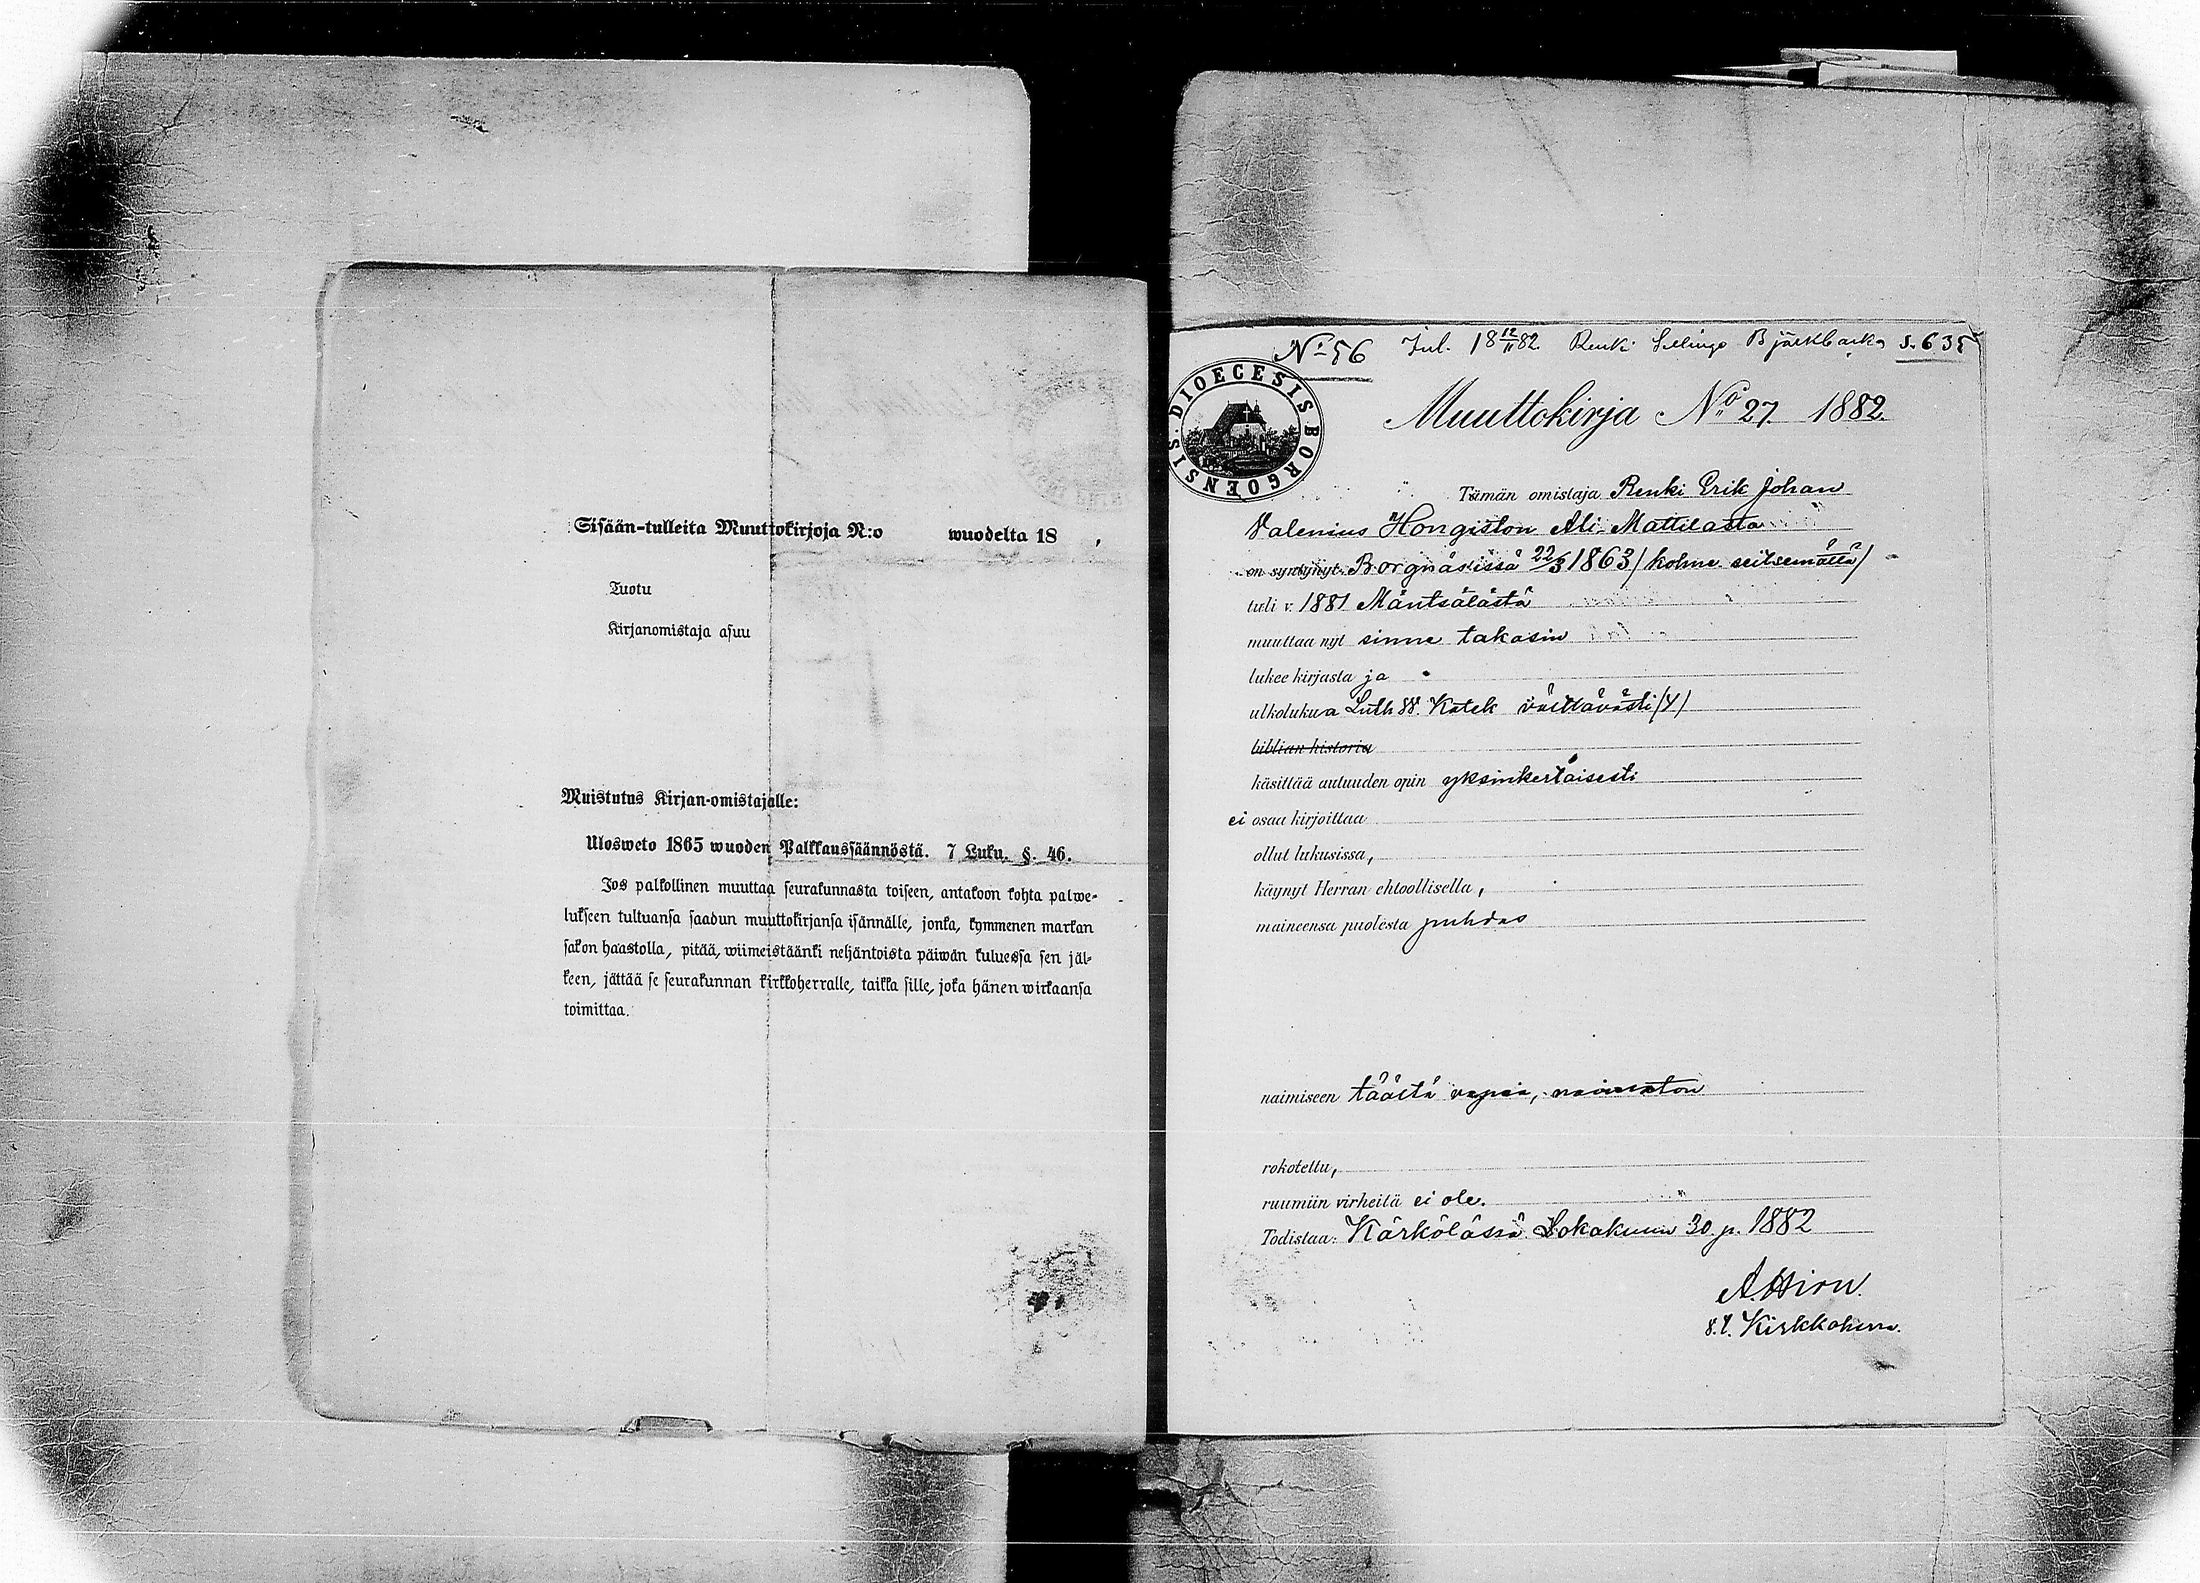 Sisään-tulleita Muuttokirjoja N:o wuodelta 18 .
Tuotu
Kirjanomistaja asuu
Muistutus Kirjan-omistajalle:
Ulosweto 1865 wuoden Palkkaussäännöstä. 7 Luku. §. 46.
Jos palkollinen muuttaa seurakunnasta toiseen, antakoon kohta palwe-
lukseen tultuansa saadun muuttokirjansa isännälle, jonka, kymmenen markan
sakon haastolla, pitää, wiimeistäänki neljäntoista päiwän kuluessa sen jäl-
keen, jättää se seurakunnan kirkkoherralle, taikka sille, joka hänen wirkaansa
toimittaa.
No 56 Inl. 18 12/11 82. Renki Bjärkbacka s. 635
DIOECESIS BORGOENSIS
Muuttokirja No 27. 1882.
Tämän omistaja Renki Erik Johan
Valenius Hongiston Ali-Mattilasta
on syntynyt Borgnäsissä 22/3 1863 / kolme seitsemättä /
tuli v. 1881 Mäntsälästä
muuttaa nyt sinne takasin
lukee kirjasta ja
ulkolukua Luth. Katek välttävästi /4/
biblian historia
käsittää autuuden opin yksinkertaisesti
ei osaa kirjoittaa
ollut lukusissa,
käynyt Herran ehtoollisella,
maineensa puolesta puhdas
naimiseen täältä vapaa, naimaton
rokotettu,
ruumiin virheitä ei ole.
Todistaa: Kärkölässä Lokakuun 30 p. 1882
A. Hirn.
Kirkkoherra.